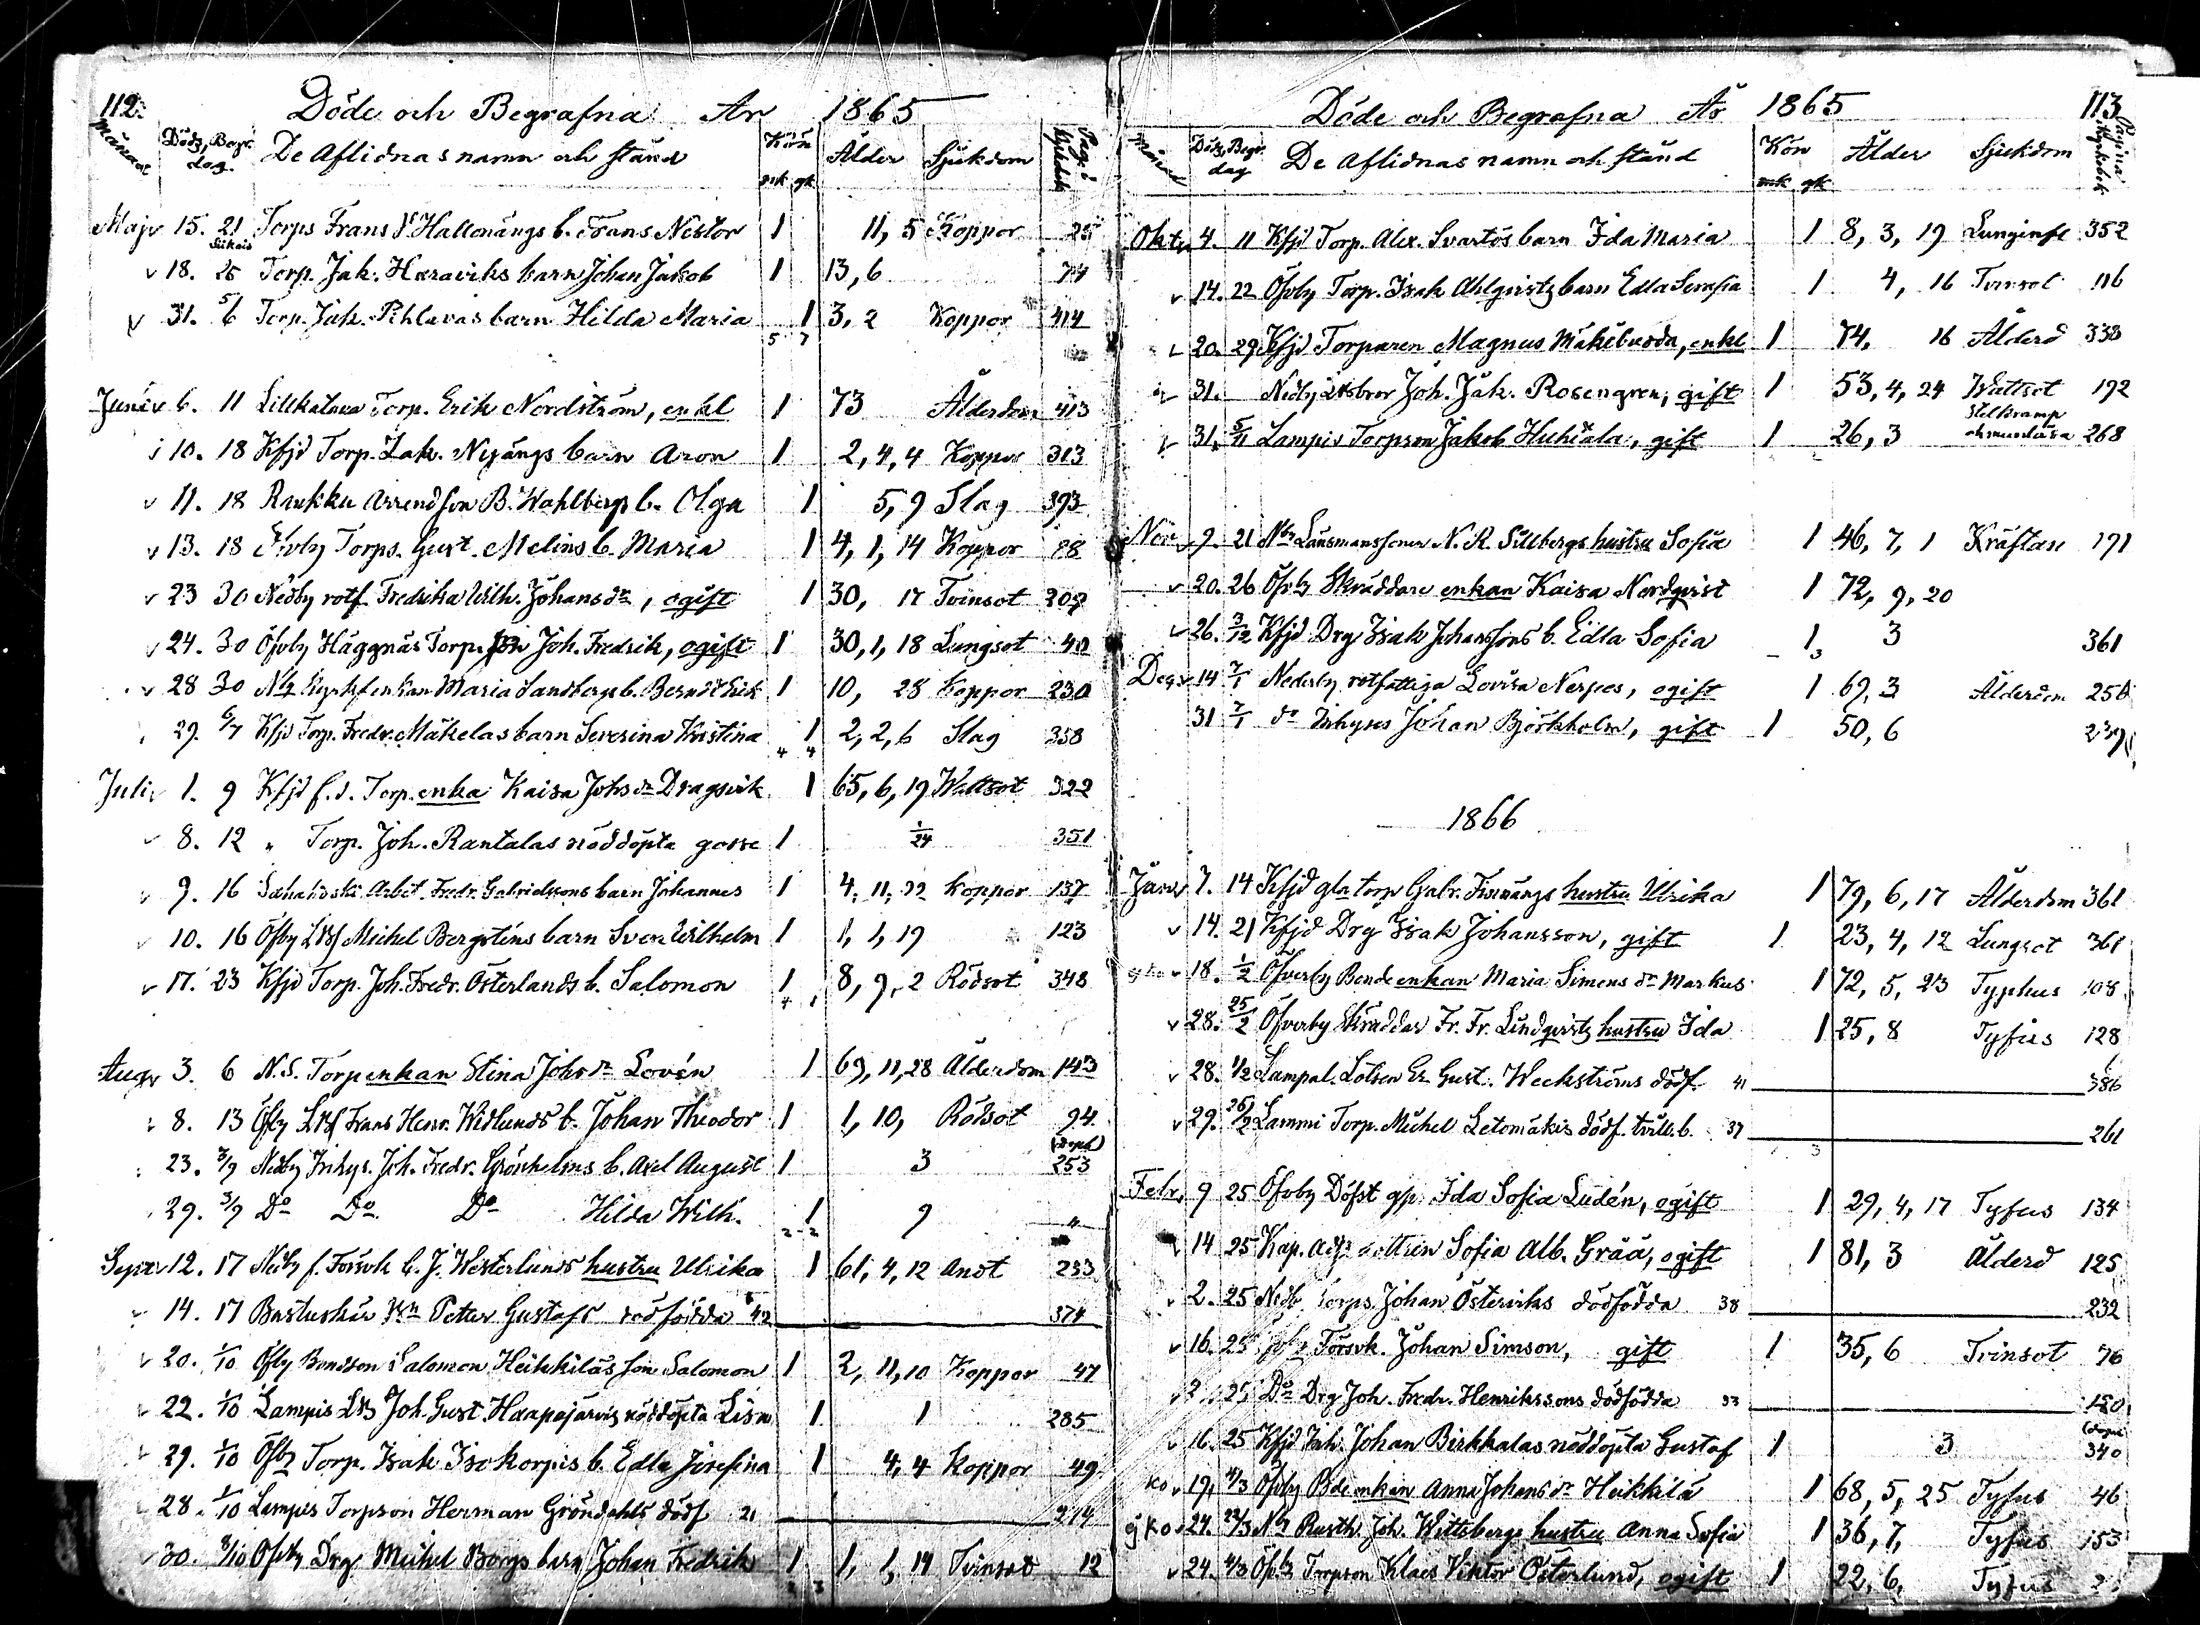 112.
Döde och Begrafna År 1865
Månad Döds, Begr. dag. De Aflidnas namn och stånd Kön mk qk Ålder Sjukdom Pag. i
Maj 15. 21 Torps Frans Hallonängs b. Frans Nestor 1 11, 5 Koppor 25
18. 25 Torp. Jak. Haraviks barn Johan Jakob 1 13, 6 74
31. 5/6 Torp. Jak. Pihlavas barn Hilda Maria 1 3, 2 Koppor 414
5 7
Juni 6. 11 Lillkalana Torp. Erik Nordström, enkl 1 73 Ålderdom 413
10. 18 Kfjd Torp. Zak. Nyängs barn Aron 1 2, 4, 4 Koppor 313
11. 18 Raukku B. Wahlbergs b. Olga 1 5, 9 Slag 393
13. 18 Torps. Gust. Melins b. Maria 1 4, 1, 14 Koppor 88
23 30 Nedby rotf. Fredrika Wilh. Johansdr, ogift 1 30, 17 Tvinsot 209
24. 30 Öfvby Häggnäs Torp. son Joh. Fredrik, ogift 1 30, 1, 18 Lungsot 40
28 30 enkan Maria Sandbergs b. Berndt Erik 1 10, 28 Koppor 230
29. 6/7 Kfjd Torp. Fredr. Mäkelas barn Severina Kristina 1 2, 2, 6 Slag 358
4 4
Juli 1. 9 Kfjd f.d. Torp. enka Kaisa Johsdr Dragsvik 1 65, 6, 19 Wattsot 322
8. 12 " Torp. Joh. Rantalas nöddöpta gosse 1 1/24 351
9. 16 Arbet. Fredr. Gabrielssons barn Johannes 1 4, 11, 22 Koppor 137
10. 16 Öfby Michel Bergsténs barn Sven Wilhelm 1 1, 1, 19 123
17. 23 Kfjd Torp. Joh. Fredr. Österlands b. Salomon 1 8, 9, 2 Rödsot 348
4 1
Aug 3. 6 N.S. Torpenkan Stina Johsdr Lovén 1 69, 11, 28 Ålderdom 143
8. 13 Öfby Frans Henr. Widlunds b. Johan Theodor 1 1, 10, Rödsot 94.
23. 3/9 Nedby Inhys. Joh. Fredr. Grönholms b. Axel August 1 3 253
29. 3/9 Do Do Do Hilda Wilh. 1 9 "
2 2
Sept 12. 17 Nedby f. Försvk C. J. Westerlunds hustru Ulrika 1 61, 4, 12 Andt 233
14. 17 Busluskär Petter Gustafs dödfödda 42 374
20. 1/10 Öfby Bondson Salomon Heikkiläs son Salomon 1 2, 11, 10 Koppor 47
22. 1/10 Lampis Joh. Gust. Haapajärvis nöddöpta Lisa 1 1 285
29. 1/10 Öfby Torp. Isak Isokorpis b. Edla Josefina 1 4, 4 Koppor 49
28. 1/10 Lampis Torpson Herman Gröndahls dödf 21 214
30. 8/10 Öfvby Drg Michel Borgs barn Johan Fredrik 1 1, 1, 14 Tvinsot 12
2 3
113
Döde och Begrafna År 1865
Månad Döds, Begr. dag De Aflidnas namn och stånd Kön mk qk Ålder Sjukdom Pagina i Kyrkobok
Oktr 4. 11 Kfjd Torp. Alex. Svartös barn Ida Maria 1 8, 3, 19 Lunginfl 352
14. 22 Öfvby Torp. Isak Ahlqvists barn Edla Serafia 1 4, 16 Tvinsot 116
20. 29 Kfjd Torparen Magnus enkl 1 74, 16 Ålderd 338
31. Nedby Joh. Jak. Rosengren, gift 1 53, 4, 24 Wattsot 192
31. 5/11 Lampis Torpson Jakob Huhtala, gift 1 26, 3 Stelkramp 268
Nov 9. 21 Länsmanssonen N. R. Sillbergs hustru Sofia 1 46, 7, 1 Kräftan 171
20. 26 Öfvby Skräddare enkan Kaisa Nordqvist 1 72, 9, 20
26. 3/12 Kfjd Drg Isak Johanssons b. Edla Sofia 1 3 361
3
Decr 14 7/1 Nederby rotfattiga Lovisa Nerpes, ogift 1 69, 3 Ålderdm 256
31 7/1 do Inhyses Johan Björkholm, gift 1 50, 6 239
1866
Janr 7. 14 Kfjd gla torp Gabr. hustru Ulrika 1 79, 6, 17 Ålderdm 361
14. 21 Kfjd Drg Isak Johansson, gift 1 23, 4, 12 Lungsot 361
18. 1/2 Öfverby Bonde enkan Maria Simons dr Markus 1 72, 5, 23 Typhus 108
28. 25/2 Öfverby Skräddar Fr. Fr. Lindqvists hustru Ida 1 25, 8 Tyfus 128
28. 1/2 Lampal. Lotsen Er. Gust. Weckströms dödf. 41 386
29. 26/2 Lammi Torp. Michel Letomäkis dödf. tvill. b. 37 261
3
Febr 9 25 Öfvby Ida Sofia Ludén, ogift 1 29, 4, 17 Tyfus 134
14 25 Kap. Sofia Alb. Grää, ogift 1 81, 3 Ålderd 125
2. 25 Nedb. Torps. Johan Österviks dödfödda 38 232
16. 25 Försvk. Johan Simson, gift 1 35, 6 Tvinsot 76
2 25 Do Drg Joh. Fredr. Henrikssons dödfödda 33 150
16. 25 Kfjd Inh. Johan Birkkalas nöddöpta Gustaf 1 3 340
19, 4/3 Öfvby Bde enkan Anna Johans dr Heikkilä 1 68, 5, 25 Tyfus 46
24. Rusth. Joh. Wittsbergs hustru Anna Sofia 1 36, 7, Tyfus 153
24. 4/3 Öfvb Torpson Klaes Viktor Österlund, ogift 1 22, 6, Tyfus